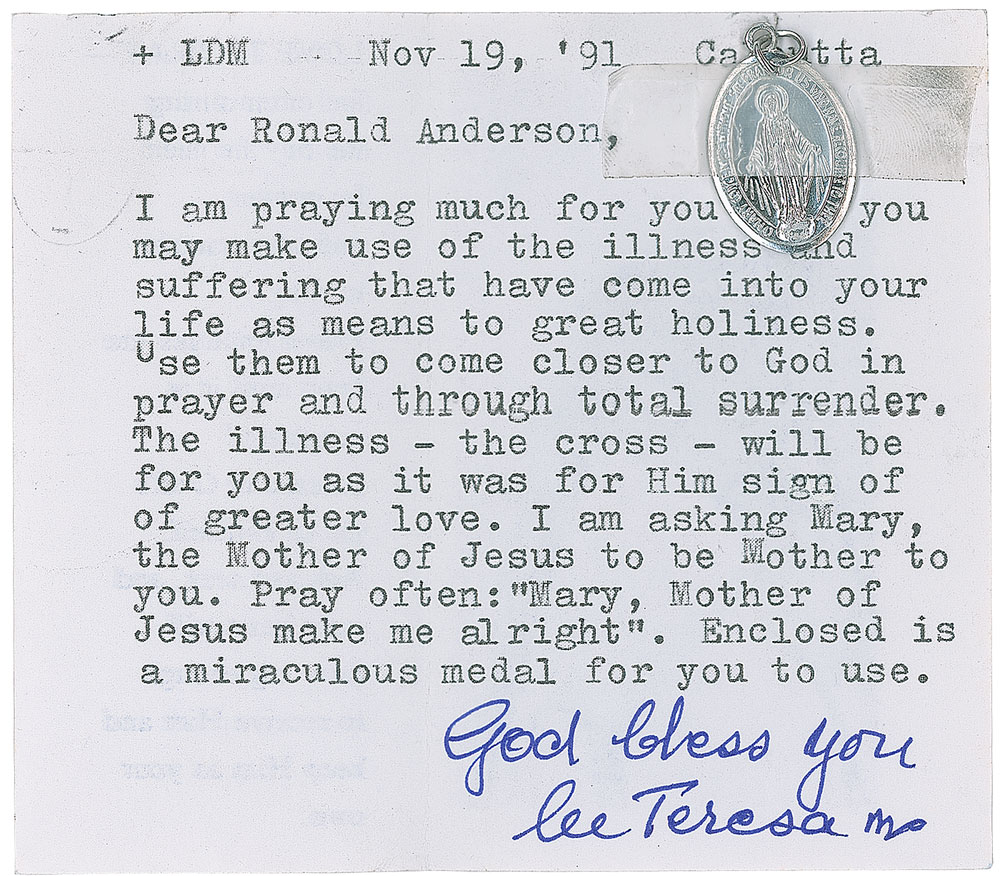 + LDM Nov 19, '91 Calcutta
Dear Ronald Anderson,
I am praying much for you you
may make use of the illness and
suffering that have come into your
life as means to great holiness.
Use them to come closer to God in
prayer and through total surrender.
The illness - the cross - will be
for you as it was for Him sign of
of greater love. I am asking Mary,
the Mother of Jesus to be Mother to
you. Pray often:"Mary, Mother of
Jesus make me alright". Enclosed is
a miraculous medal for you to use.
God bless you
lee Teresa mc